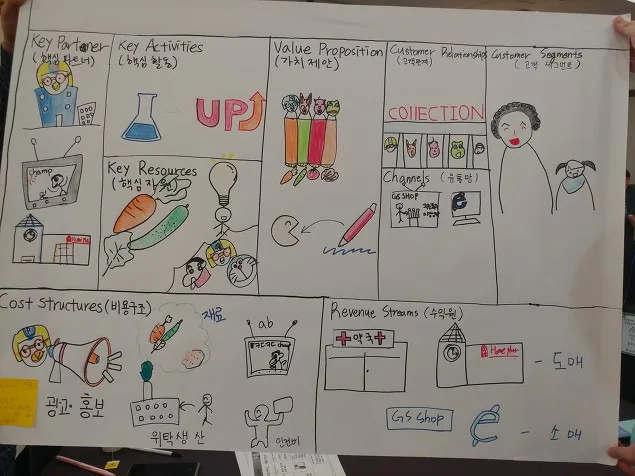 Key Partner
(핵심 파트너)
champ
Home Plus
Key Activities
(핵심 활동)
UP
Key Resources
(핵심자원)
Value Proposition
(가치 제안)
Customer Relationships
(고객관계)
COllECTION
Channels (유통망)
GS SHOP
Customer Segments
(고객 세그먼트)
Cost Structures (비용구조)
광고·홍보
재료
위탁생산
ab
인건비
Revenue Streams (수익원)
약국
Home Plus
- 도매
GS Shop
- 소매